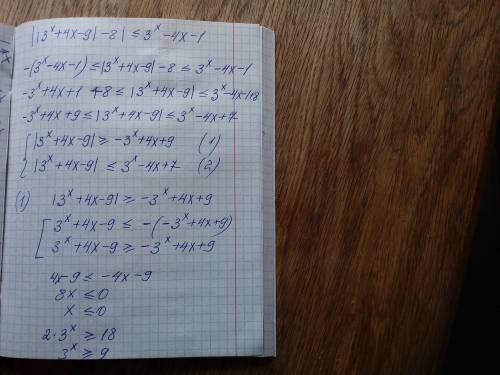 ||3^x+4x-9|-8| ≤ 3^x-4x-1
-(3^x-4x-1) ≤ |3^x+4x-9|-8 ≤ 3^x-4x-1
-3^x+4x+1+8 ≤ |3^x+4x-9| ≤ 3^x-4x-1+8
-3^x+4x+9 ≤ |3^x+4x-9| ≤ 3^x-4x+7
{ |3^x+4x-9| ≥ -3^x+4x+9 (1)
|3^x+4x-9| ≤ 3^x-4x+7 (2)
(1) |3^x+4x-9| ≥ -3^x+4x+9
[ 3^x+4x-9 ≤ -(-3^x+4x+9)
3^x+4x-9 ≥ -3^x+4x+9
4x-9 ≤ -4x-9
8x ≤ 0
x ≤ 0
2·3^x ≥ 18
3^x ≥ 9